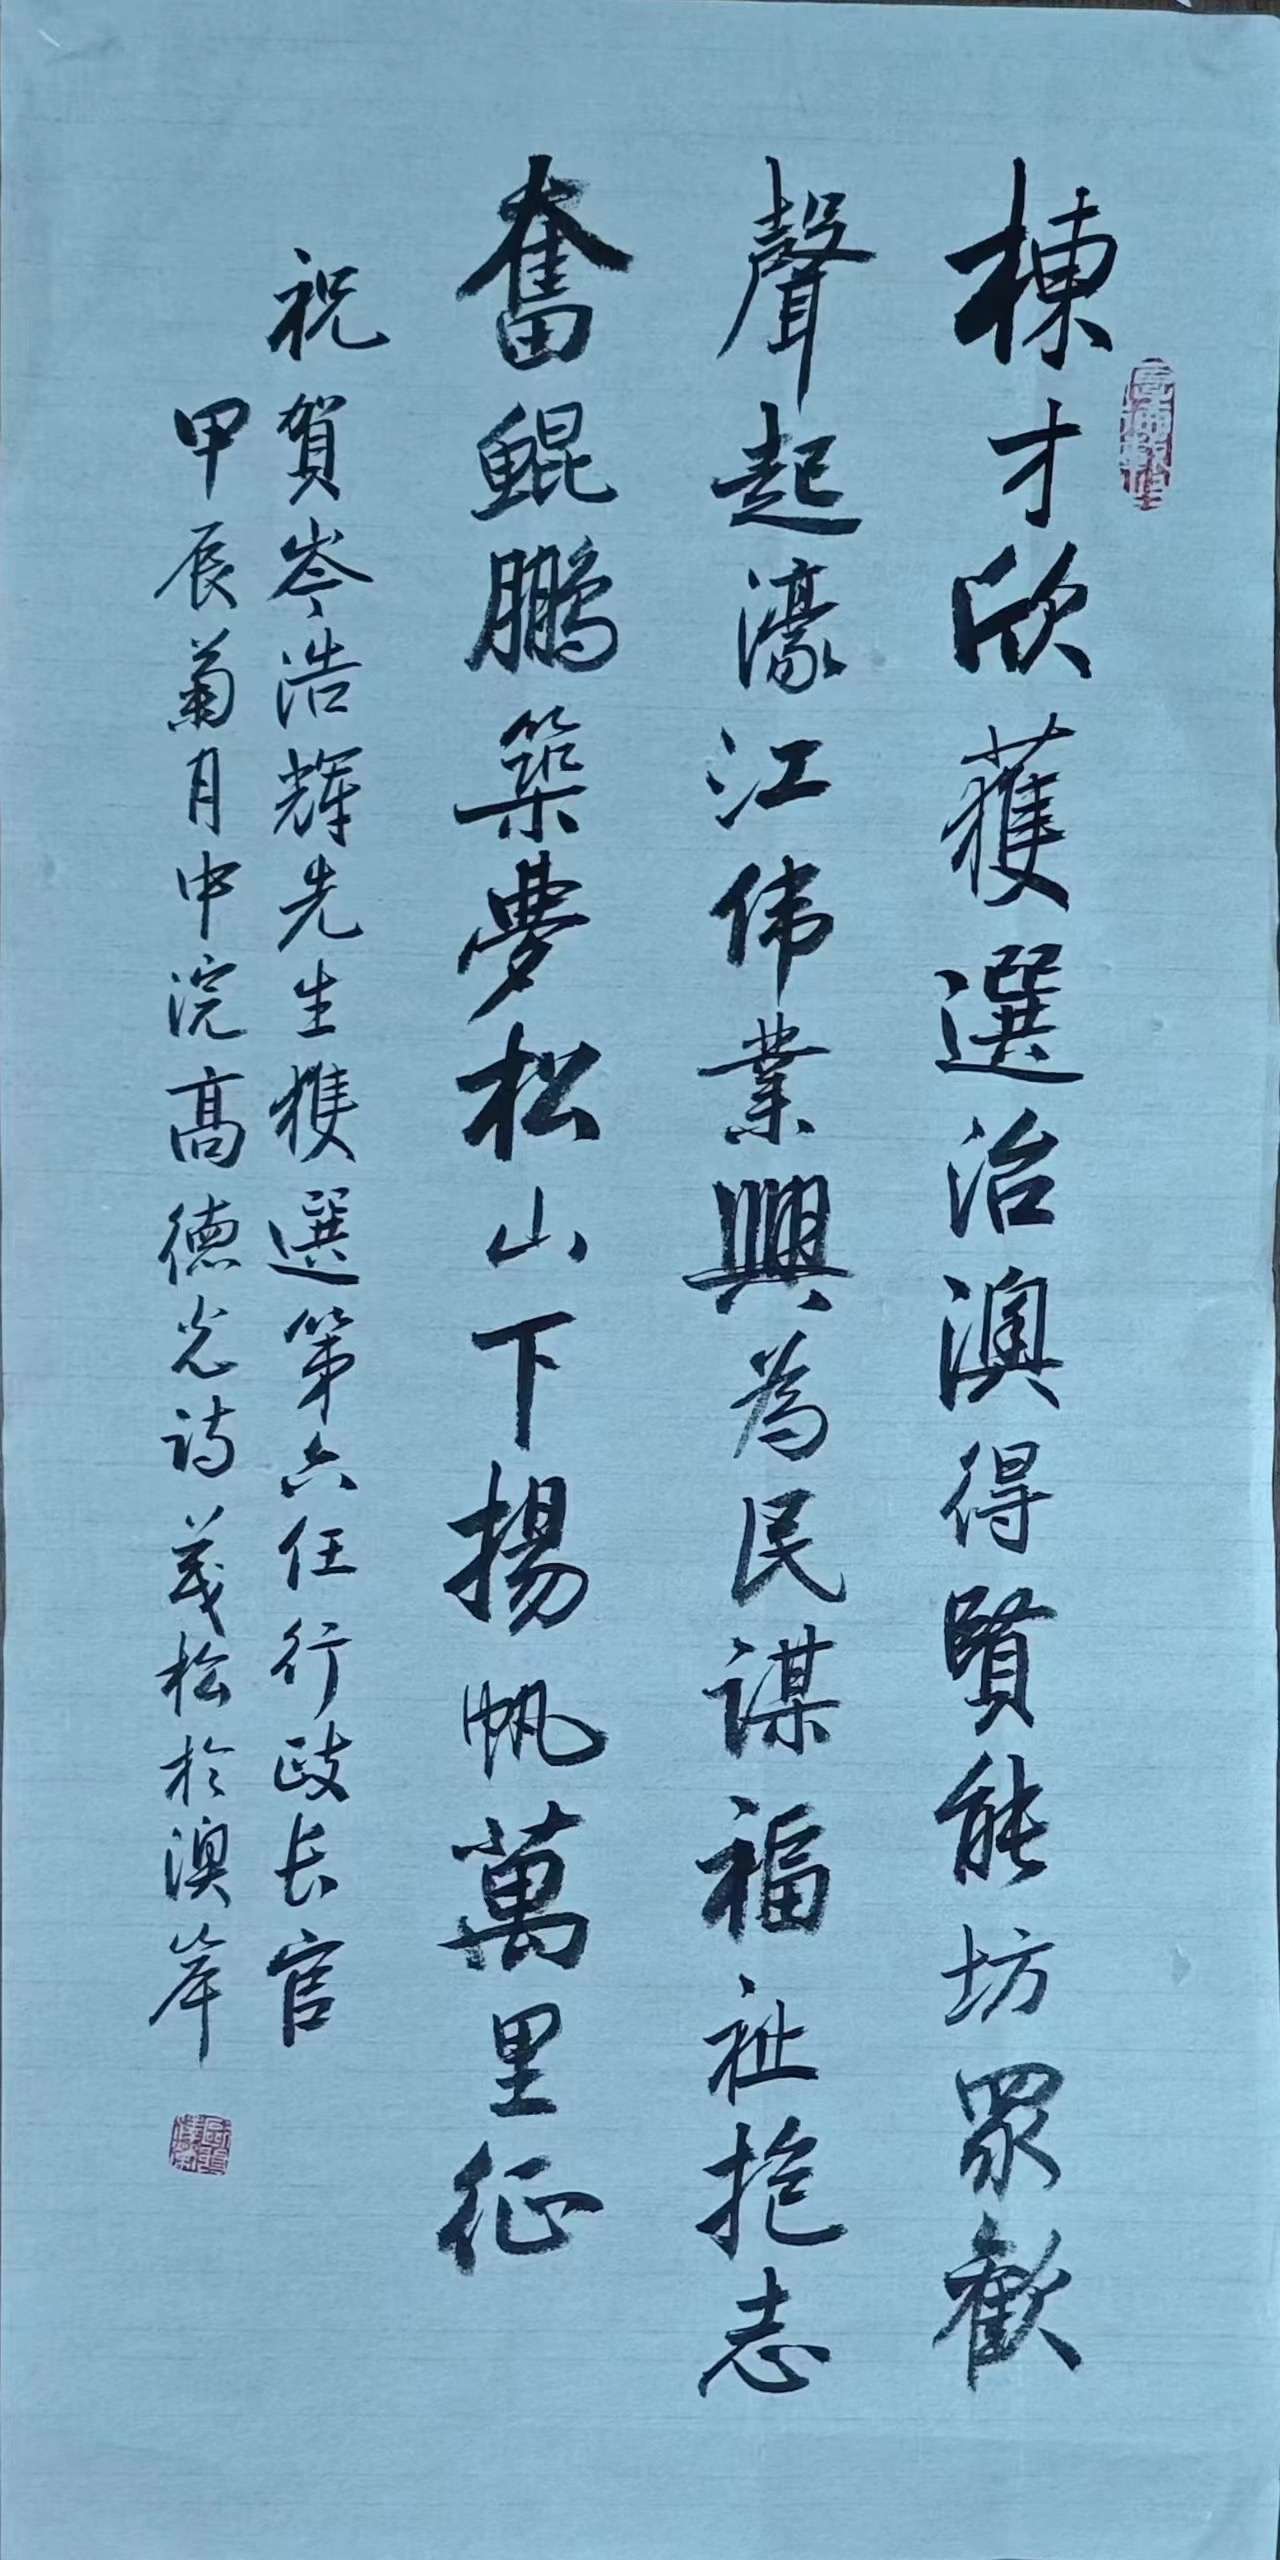 棟才欣獲選治澳得賢能坊眾歡
聲起濠江伟業興為民謀福祉抱志
奮鯤鵬築夢松山下揚帆萬里征
祝賀岑浩辉先生獲選第六任行政长官
甲辰菊月中浣高德光诗茂松於澳岸